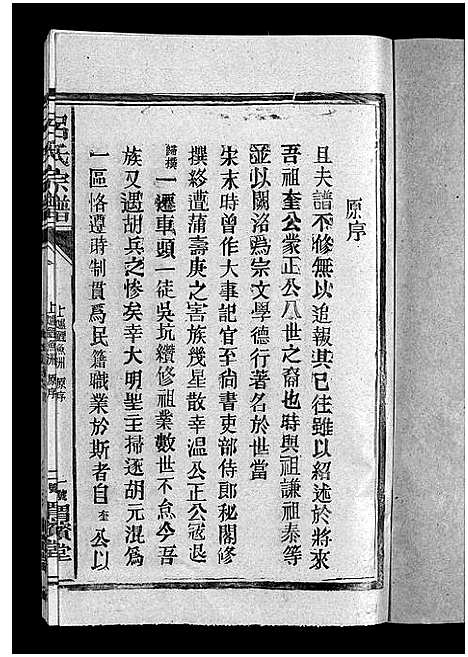 原序
且夫譜不修無以追報其已往雖以紹述於將來
吾祖奎公蒙正公八世之裔也時與祖謙祖泰等
並以關洛為宗文學德行著名於世當
宋末時曾作大事記官至尚書吏部侍郎秘閣修
撰終遭蒲壽庚之害族幾星散幸溫公正公冦退
歸撰一遷車頭一徒吳坑纘修祖業數世不怠今吾
族又遇胡兵之慘矣幸大明聖主掃逐胡元混為
一區恪遵時制貫為民籍職業於斯者自奎公以
呂氏宗譜
上墟鯉魚洲 原序
上墟鯉魚洲 原序
一號
渭濱堂